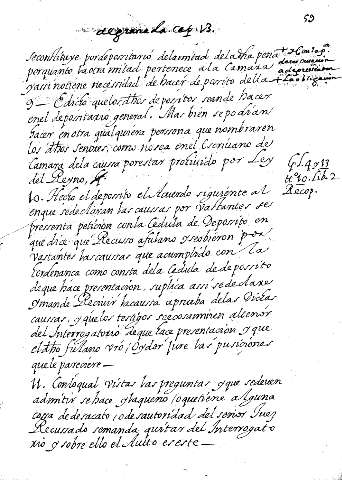 59
de granada Cap. VI3.
se constituye por depositario de la mitad de la dha pena
por quanto la otra mitad pertenece a la Camara
y assi no tiene necesidad de hacer deposito della
9_ Edicto que los dhos depositos se an de hacer
en el depositario general. Mas bien se podrian
hacer en otra qualquiera persona que nombraren
los dhos Señores, como no sea en el escriuano de
Camara de la caussa por estar prohiuido por Ley
del Reyno,
G. l. 9 y 33
tt° 20. Lib 2
Recop.
10. Hecho el deposito el Acuerdo siguiente al
en que se declaran las caussas por vastantes se
presenta peticion con la Cedula de Deposito en
que dice que Recuso a fulano y se obieron por
vastantes las caussas que a cumplido con las
hordenanca como consta de la Cedula de deposito
de que hace presentacion, suplica assi se declare
y mande Reciuir la caussa a prueba de las dichas
caussas, y que los testigos se examinen al tenor
del Interrogatorio de que hace presentacion y que
el dho fulano vió / Oydor jure las pusiciones
que le pareciere _
11. Con lo qual vistas las preguntas y que se deven
admitir se hace, y la que no / o que tiene alguna
cossa de desacato / o desautoridad del señor Juez
Recussado se manda quitar del Interrogato
rio y sobre ello el Auto es este _